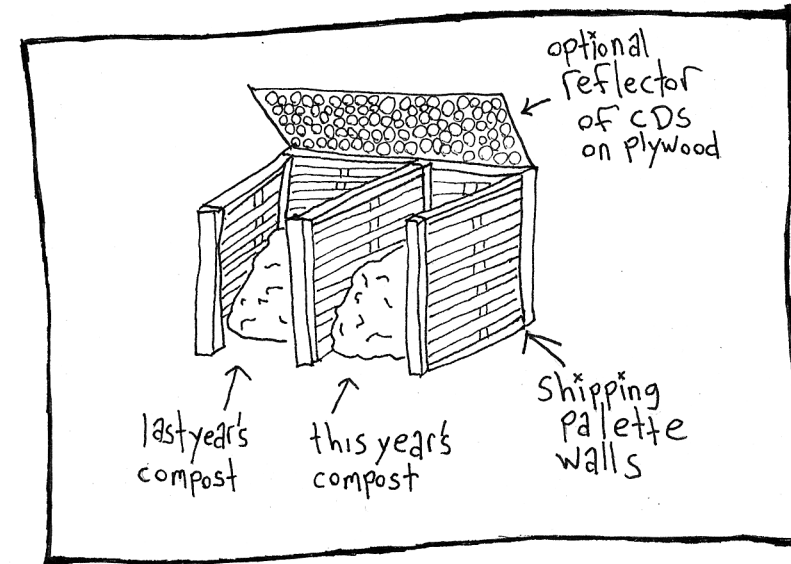 optional
reflector
of CDS
on plywood
last year's
compost
this year's
compost
shipping
palette
walls